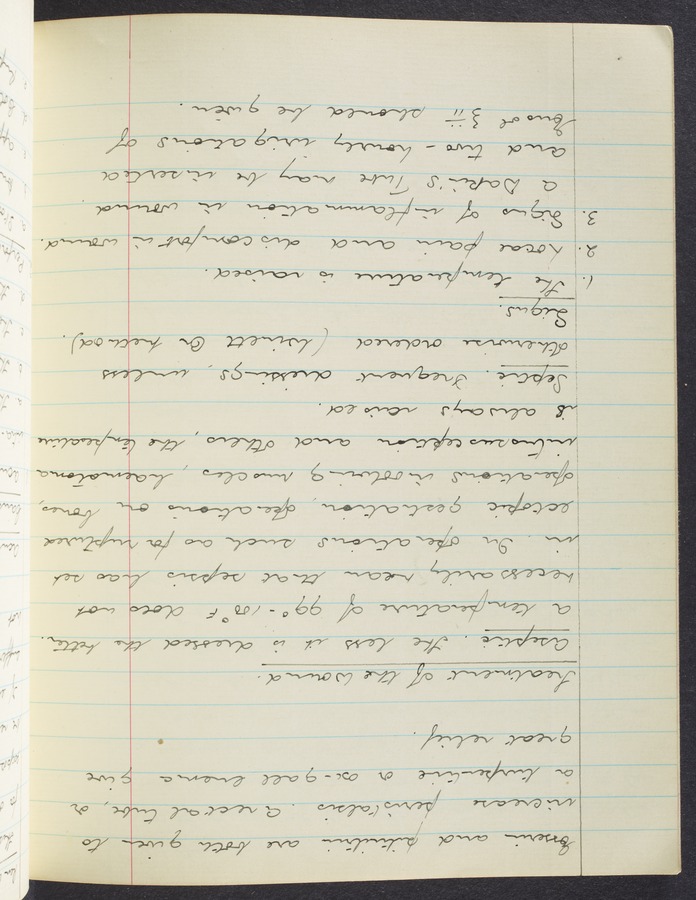 Eserin and pituitrin are both given to
increase peristalsis. A rectal tube, or,
a turpentine or ox-gall enema give
great relief.
Treatment of the Wound.
Aseptic. The less it is dressed the better.
a temperature of 99° - 100° F does not
necessarily mean that sepsis has set
in. In operations such as for ruptured
ectopic gestation, operations on bones,
operations involving muscles, haematoma
intussusception and others, the temperature
is always raised.
Septic. Frequent dressings, unless
otherwise ordered ( Method).
Signs.
1. The temperature is raised.
2. Local pain and discomfort in wound.
3. Signs of inflammation in wound.
a Dakin's Tube may be inserted
and two-hourly irrigations of
Eusol ℥ ii should be given.